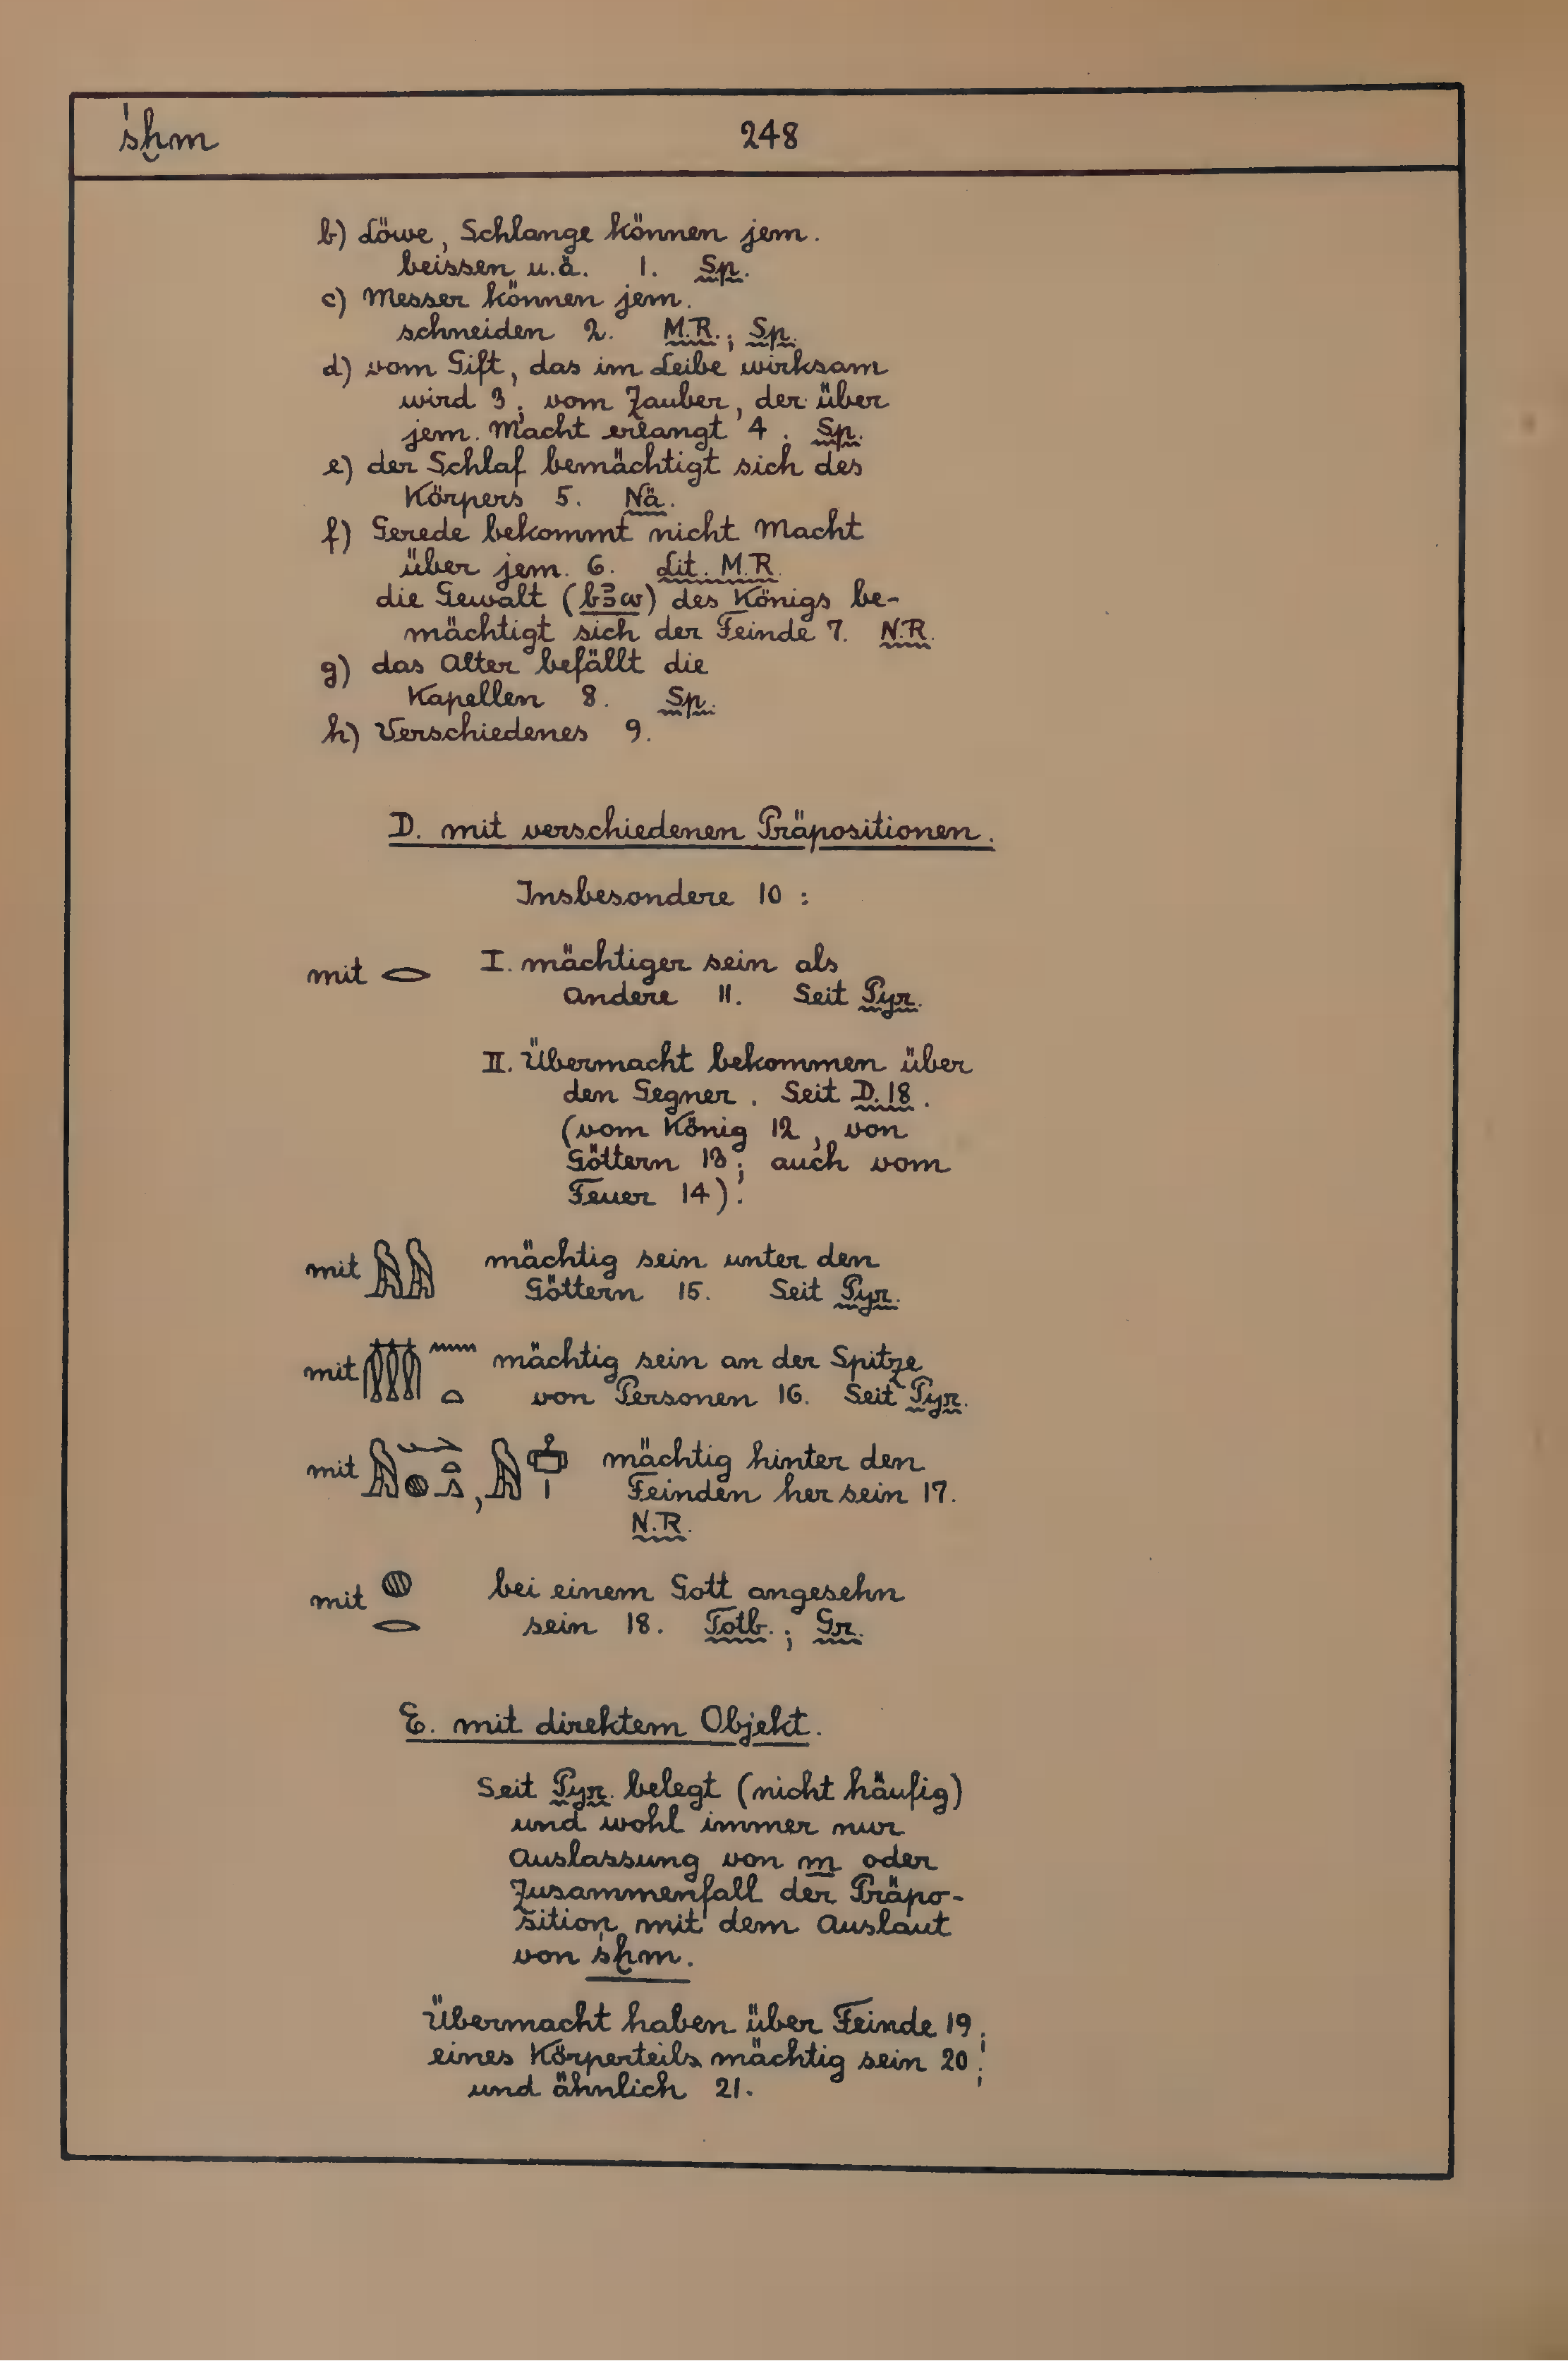 śḫm 248
b) Löwe, Schlange können jem.
beissen u.ä. 1. Sp.
c) Messer können jem.
schneiden 2. M.R.; Sp.
d) vom Gift, das im Leibe wirksam
wird 3; vom Zauber, der über
jem. Macht erlangt 4. Sp.
e) der Schlaf bemächtigt sich des
Körpers 5. Nä.
f) Gerede bekommt nicht Macht
über jem. 6. Lit. M.R.
die Gewalt (bꜣw) des Königs be-
mächtigt sich der Feinde 7. N.R.
g) das Alter befällt die
Kapellen 8. Sp.
h) Verschiedenes 9.
D. mit verschiedenen Präpositionen.
Insbesondere 10 :
mit 𓂋 I. mächtiger sein als
Andere 11. Seit Pyr.
II. Übermacht bekommen über
den Gegner. Seit D. 18.
(vom König 12, von
Göttern 13; auch vom
Feuer 14).
mit 𓅓𓅓 mächtig sein unter den
Göttern 15. Seit Pyr.
mit 𓏃𓈖𓏏 mächtig sein an der Spitze
von Personen 16. Seit Pyr.
mit mächtig hinter den
Feinden her sein 17.
N.R.
mit 𓐍𓂋 bei einem Gott angesehn
sein 18. Totb.; Gr.
E. mit direktem Objekt.
Seit Pyr. belegt (nicht häufig)
und wohl immer nur
Auslassung von m oder
Zusammenfall der Präpo-
sition mit dem Auslaut
von śḫm.
Übermacht haben über Feinde 19;
eines Körperteils mächtig sein 20;
und ähnlich 21.